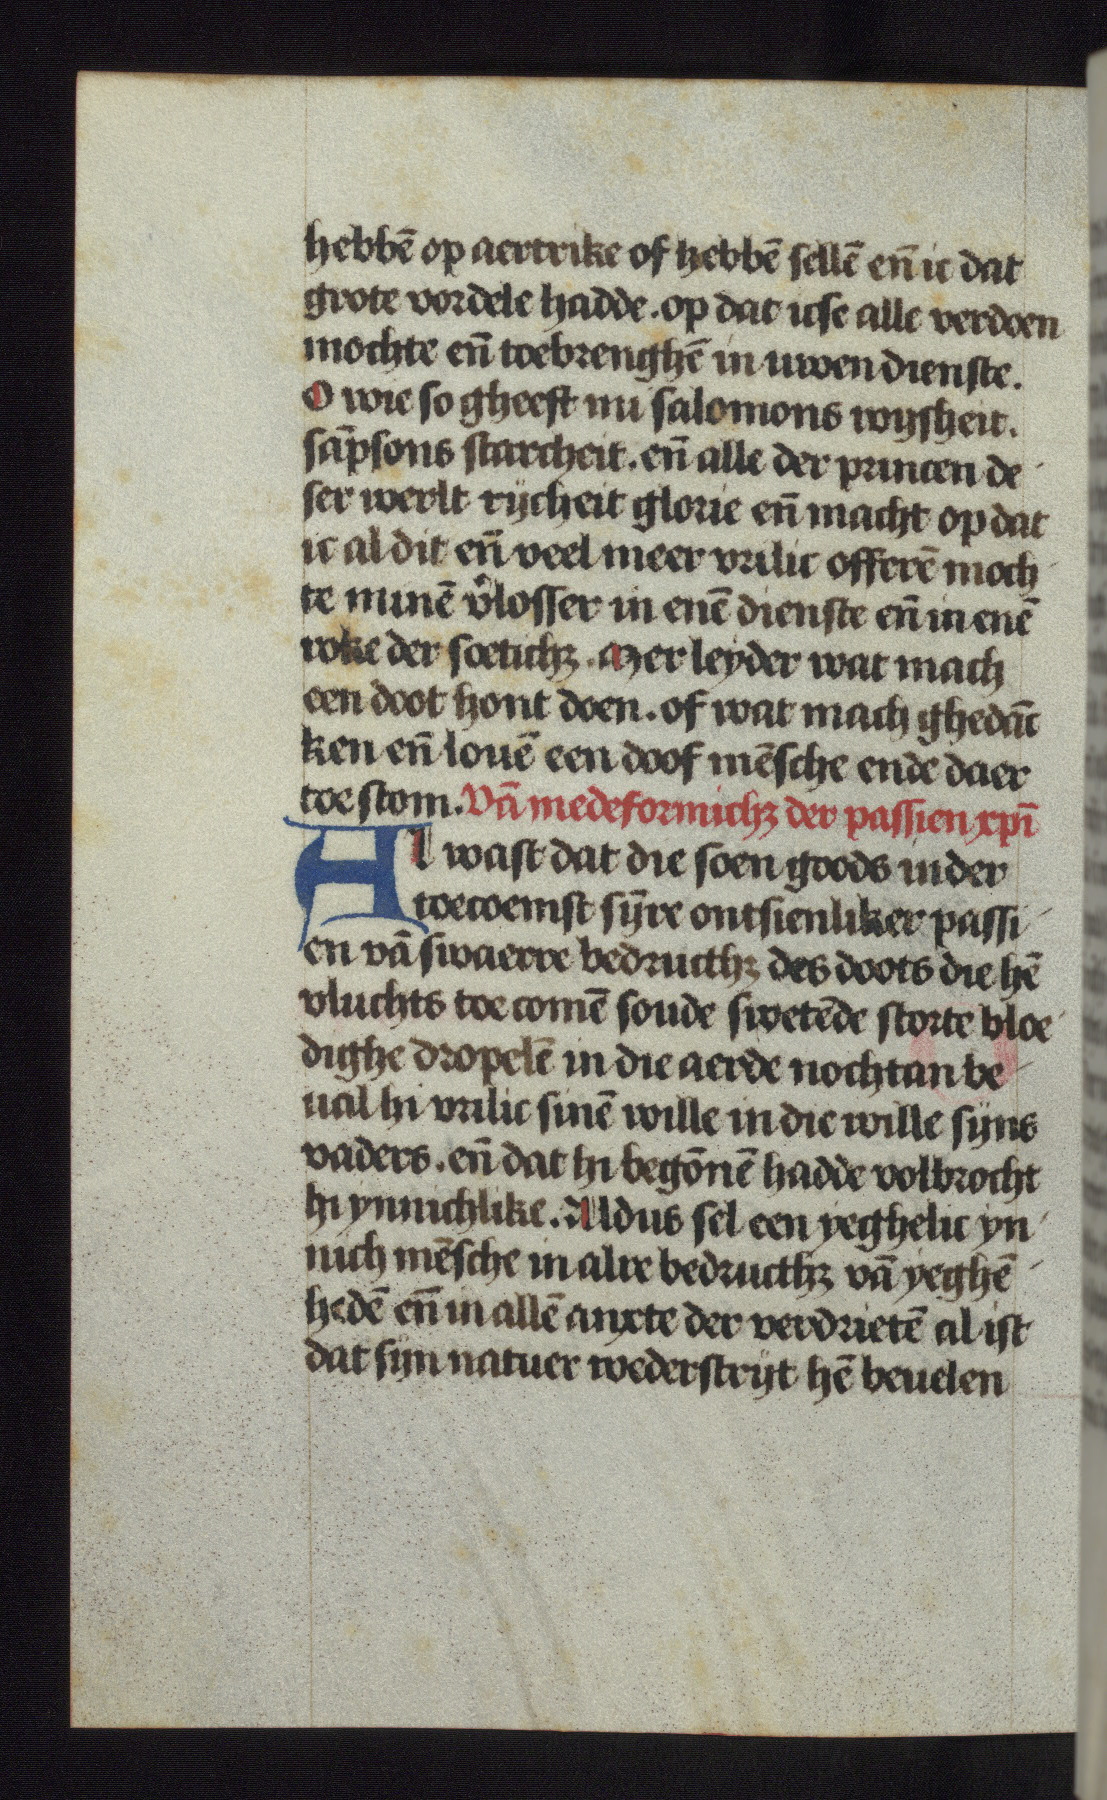 hebbē op aertrike of hebbē sellē en̄ ic dat
grote vordele hadde. op dat icse alle verdoen
mochte en̄ toebrenghē in uwen dienste.
O wie so gheeft mi salomons wysheit.
sāpsons starcheit. en̄ alle der princen de
ser werlt rijcheit glorie en̄ macht op dat
ic al dit en̄ veel meer vrilic offerē moch
te minē v̓losser in enē dienste en̄ in enē
roke der soetichꝫ. Mer leyder wat mach
een doot hont doen. of wat mach ghedāc
ken en̄ louē een doof mēsche ende daer
toe stom. Vā medeformichꝫ der passien xp̄i
Al wast dat die soen goods in der
toecoemst sijnre ontsienliker passi
en vā swaerre bedructhꝫ des doots die hē
vluchts toe comē soude swetēde storte bloe
dighe dropelē in die aerde nochtan be
ual hi vrilic sinē wille in die wille sijns
vaders. en̄ dat hi begōnē hadde volbrocht
hi ynnichlike. Aldus sel een yeghelic yn
nich mēsche in alre bedructhꝫ vā yeghē
hedē en̄ in allē anxte der verdrietē al ist
dat sijn natuer wederstrijt hē beuelen